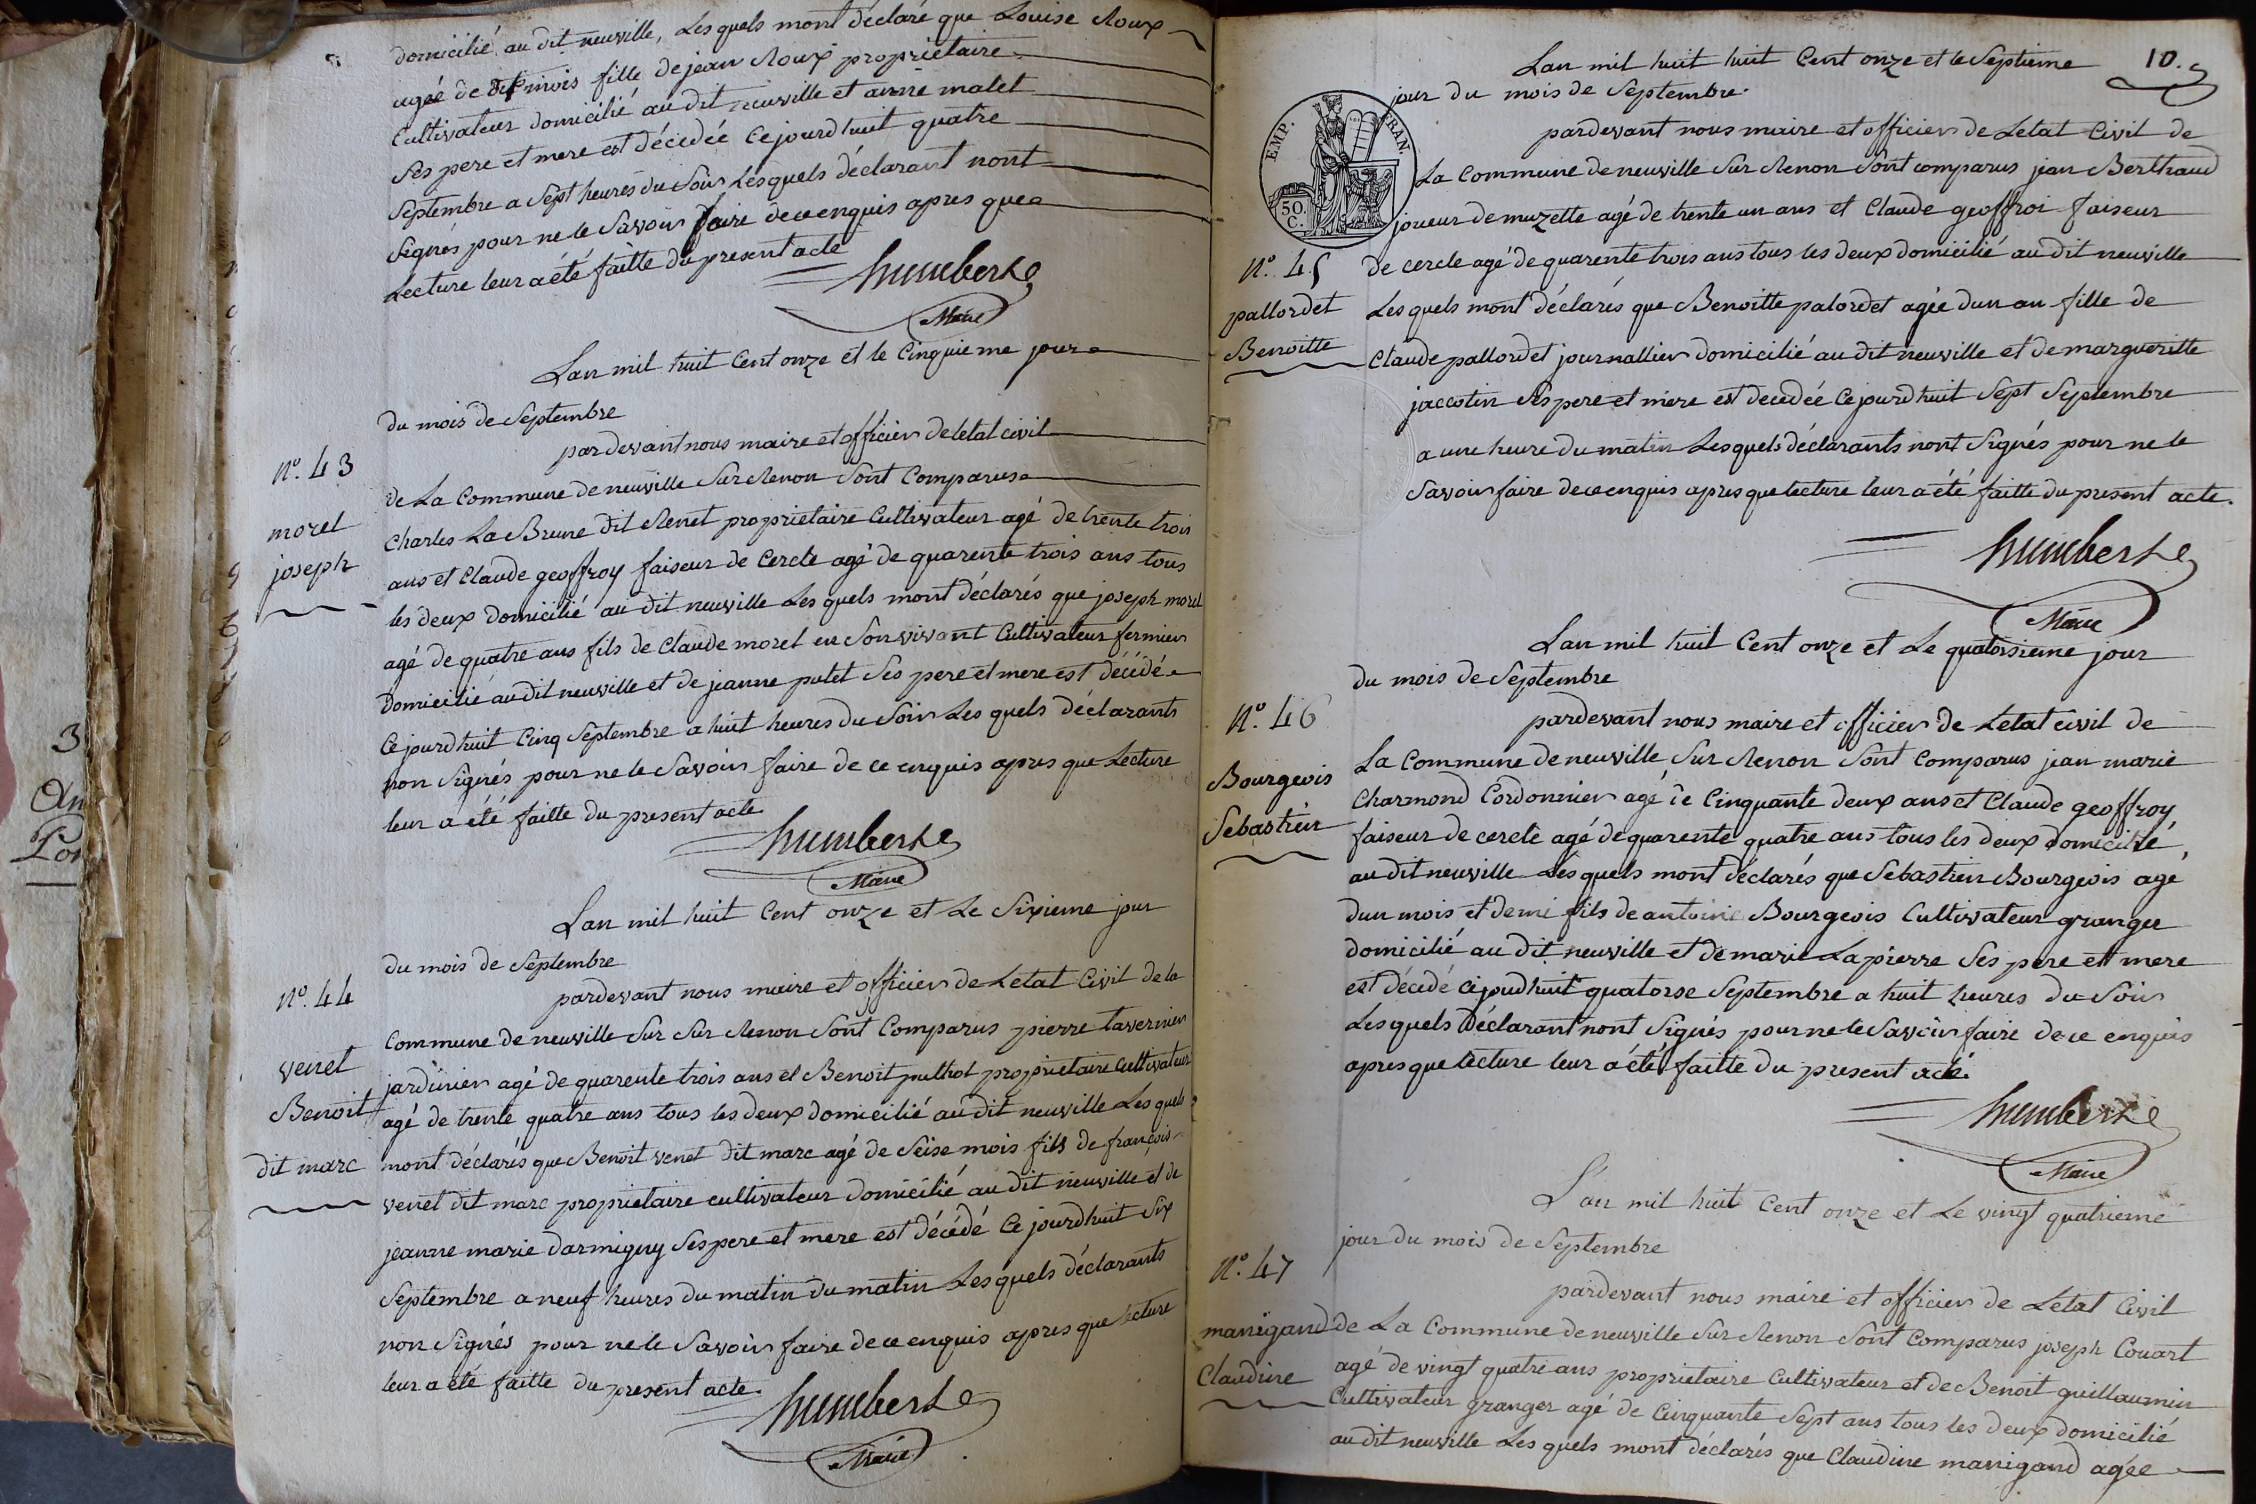 domicilié au dit neuville, Lesquels mont déclaré que Louise Roux
agée de mois fille de jean Roux propriétaire
Cultivateur domicilié au dit neuville et aimé malet
Ses pere et mere est décédée Cejourdhuit quatre
Septembre a Sept heures du Soir Lesquels déclarant nont
Signés pour ne le Savoir faire dece enquis apres que
Lecture leur a été faitte du present acte
humbert
Maire
Lan mil huit Cent onze et le Cinquieme jour
du mois de Septembre
pardevant nous maire et officier deletat civil
N.º 43
de La Commune de neuville Sur Renon Sont Comparus
morel
Charles La Brune dit Renet proprietaire Cultivateur agé de trente trois
joseph
ans et Claude geoffroy faiseur de Cercle agé de quarente trois ans tous
les deux domicilié au dit neuville Les quels mont déclarés que joseph morel
agé de quatre ans fils de Claude morel en Son vivant Cultivateur fermier
domicilié au dit neuville et de jeanne putet Ses pere et mere est décédé
Ce jourdhuit Cinq Septembre a huit heures du Soir Les quels déclarants
non Signés pour ne le Savoir faire de ce enquis apres que Lecture
leur a été faitte du present acte
humbert
Maire
Lan mil huit Cent onze et Le Sixieme jour
du mois de Septembre
N.º 44
pardevant nous maire et officier de Letat Civil de la
Commune de neuville Sur Sur Renon Sont Comparus pierre tavernier
venet
jardinier agé de quarente trois ans et Benoit pulliot proprietaire Cultivateur
Benoit
agé de trente quatre ans tous les deux domicilié au dit neuville Les quels
dit marc
mont déclarés que Benoit venet dit marc agé de Seise mois fils de françois
venet dit marc proprietaire cultivateur domicilié au dit neuville et de
jeanne marie darmigny Ses pere et mere est décédé Ce jourdhuit Six
Septembre a neuf heures du matin du matin Les quels déclarants
non Signés pour ne le Savoir faire de ce enquis apres que lecture
leur a été faitte du present acte.
humbert
Maire
10.
Lan mil huit huit Cent onze et le Septieme
jour du mois de Septembre.
EMP. FRAN.
50. C.
pardevant nous maire et officier de Letat Civil de
La Commune de neuville Sur Renon Sont comparus jean Berthaud
joueur de muzette agé de trente un ans et Claude geoffroi faiseur
N.º 45
de cercle agé de quarente trois ans tous les deux domicilié au dit neuville
pallordet
Lesquels mont déclarés que Benoitte palordet agée dun an fille de
Benoitte
Claude pallordet journallier domicilié au dit neuville et de margueritte
jaccotin Ses pere et mere est decedée Ce jourdhuit Sept Septembre
a une heure du matin Lesquels déclarants nont Signés pour ne le
Savoir faire dece enquis apres que lecture leur a été faitte du present acte.
humbert
Maire
Lan mil huit Cent onze et Le quatorsieme jour
du mois de Septembre
N.º 46
pardevant nous maire et officier de Letat civil de
La Commune de neuville Sur Renon Sont Comparus jean marie
Bourgeois
Charmond Cordonnier agé de Cinquante deux ans et Claude geoffroy
Sebastien
faiseur de cercle agé de quarente quatre ans tous les deux domicilié
au dit neuville Les quels mont déclarés que Sebastien Bourgeois agé
dun mois et demi fils de antoine Bourgeois Cultivateur granger
domicilié au dit neuville et de marie Lapierre Ses pere et mere
est décédé Cejourdhuit quatorse Septembre a huit heures du Soir
Lesquels déclarant nont Signés pour ne le Savoir faire de ce enquis
apres que Lecture leur a été faitte du present acte.
humbert
Maire
L'an mil huit Cent onze et Le vingt quatrieme
jour du mois de Septembre
N.º 47
pardevant nous maire et officier de Letat Civil
manigand
de La Commune de neuville Sur Renon Sont Comparus joseph Couart
Claudine
agé de vingt quatre ans proprietaire Cultivateur et de Benoit guillaumin
Cultivateur granger agé de Cinquante Sept ans tous les deux domicilié
au dit neuville Les quels mont déclarés que Claudine manigand agée